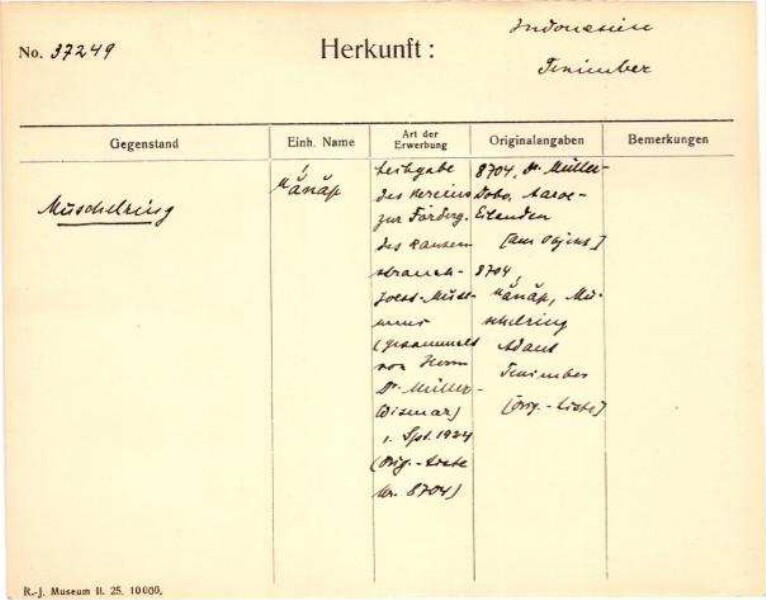 No. 37249
Herkunft:
Indonesien
Tenimber
Gegenstand
Einh. Name
Art der
Erwerbung
Originalangaben
Bemerkungen
Muschelring
Leihgabe
des Vereins
zur Förderg.
des Rauten
strauch-
Joest-Muse-
ums
(gesammelt
von Herrn
Dr. Müller-
Wismar)
1. Spt. 1924
(Orig.-Liste
Nr. 8704)
8704, Dr. Müller-
Dobo, Aaroe-
Eilanden
[am Objekt]
8704
Mu-
schelring
Adaut
Tenimber
[Orig.-Liste]
R.-J. Museum II. 25. 10000.